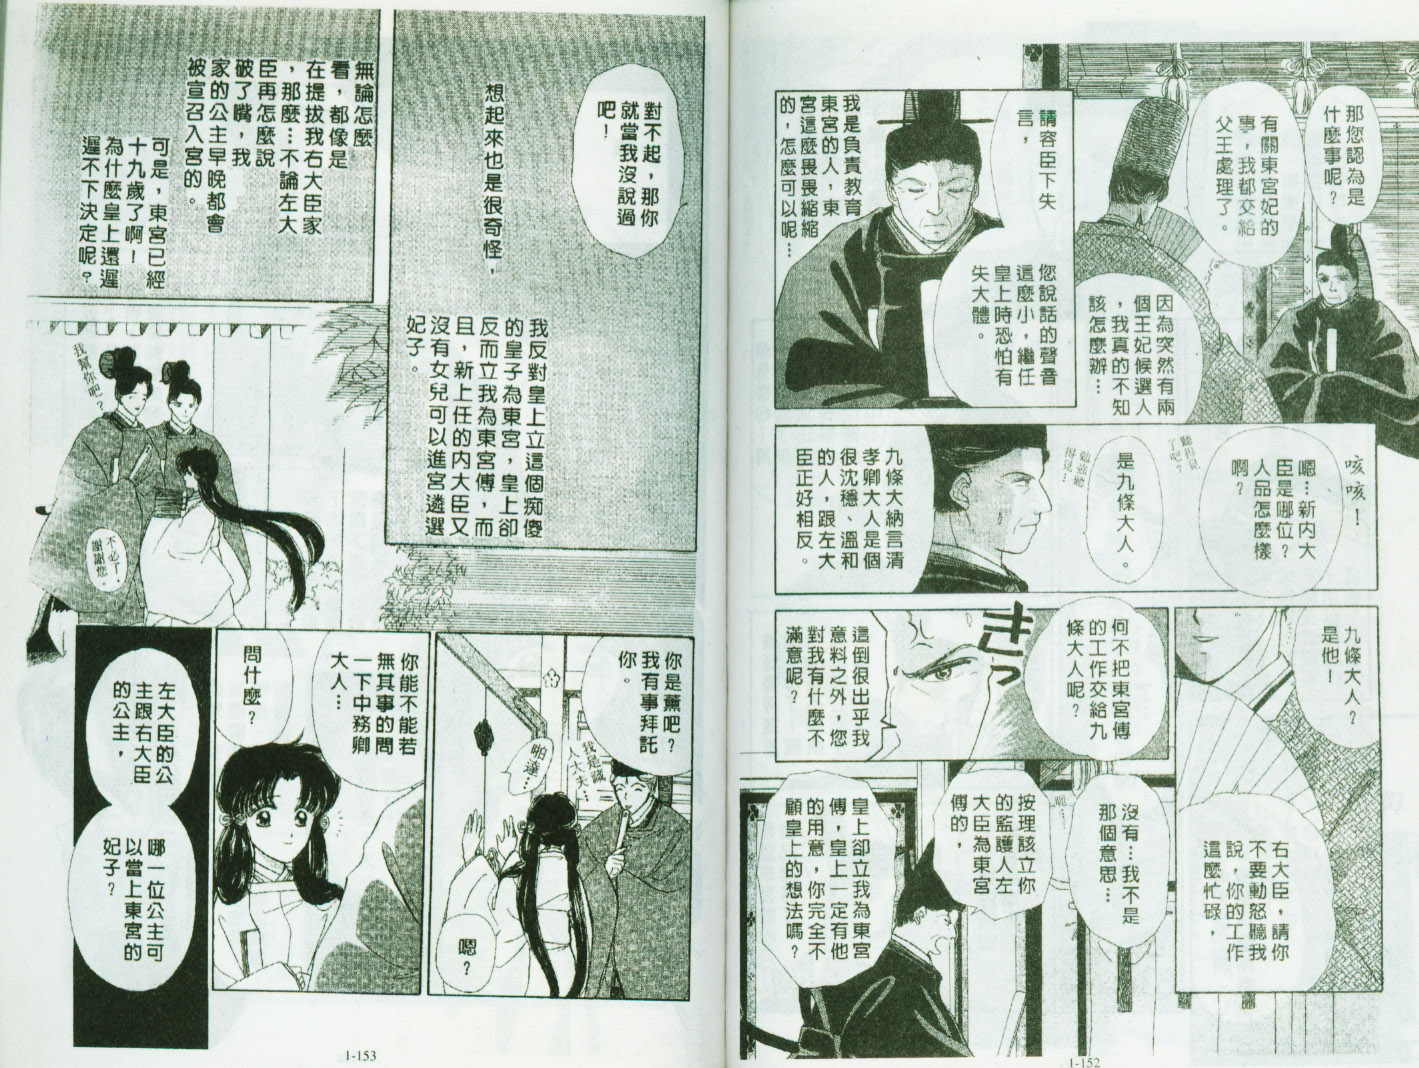 那您認為是
什麼事呢？
有關東宮妃的
事，我都交給
父王處理了。
因為突然有兩
個王妃候選人
，我真的不知
該怎麼辦…
請容臣下失
言，
您說話的聲音
這麼小，繼任
皇上時恐怕有
失大體。
我是負責教育
東宮的人，東
宮這麼畏畏縮縮
的，怎麼可以呢…
咳咳！
嗯…新内大
臣是哪位？
人品怎麼樣
啊？
聽得見
了吧？
勉強聽
得見…
是九條大人。
九條大納言清
孝卿大人是個
很沈穩、溫和
的人，跟左大
臣正好相反。
九條大人？
是他！
何不把東宮傅
的工作交給九
條大人呢？
きっ
這倒很出乎我
意料之外，您
對我有什麼不
滿意呢？
右大臣，請你
不要動怒聽我
說，你的工作
這麼忙碌，
沒有…我不是
那個意思…
呃…
按理該立你
的監護人左
大臣為東宮
傅的，
皇上卻立我為東宮
傅，皇上一定有他
的用意，你完全不
顧皇上的想法嗎？
1-152
對不起，那你
就當我沒說過
吧！
想起來也是很奇怪，
我反對皇上立這個痴傻
的皇子為東宮，皇上卻
反而立我為東宮傅，而
且，新上任的内大臣又
沒有女兒可以進宮遴選
妃子。
無論怎麼
看，都像是
在提拔我右大臣家
，那麼…不論左大
臣再怎麼說
破了嘴，我
家的公主早晚都會
被宣召入宮的。
可是，東宮已經
十九歲了啊！
為什麼皇上還遲
遲不下決定呢？
我幫你吧？
不必！
謝謝您
你是薰吧？
我有事拜託
你。
我是錢
大夫…
啪達…
嗯？
你能不能若
無其事的問
一下中務卿
大人…
問什麼？
左大臣的公
主跟右大臣
的公主，
哪一位公主可
以當上東宮的
妃子？
1-153